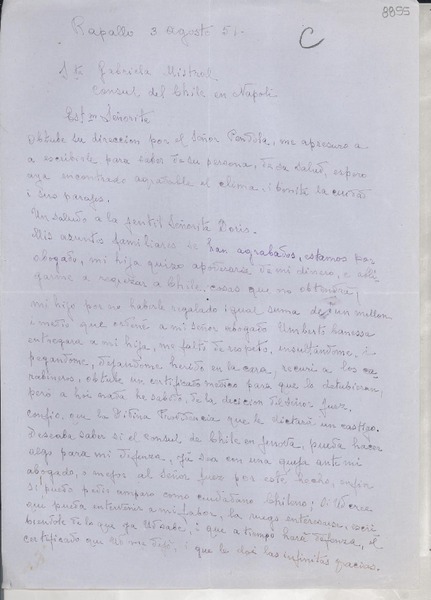 8895
C
Rapallo 3 Agosto 51-
Sta Gabriela Mistral
Consul del Chile en Napoli
Estma Señorita
Obtube su direccion por el Señor me apresuro a
a escribirle, para saber de su persona, de su salud, espero
aya encontrado agradable el clima. i bonita la ciudad
i sus parajes.
Un saludo a la gentil Señorita Doris.
Mis asuntos familiares se han agrabados, estamos por
abogado, mi hija quiso apoderarse de mi dinero, e obli
garme a regresar a Chile, cosas que no obtendrá;
mi hijo por no haberle regalado igual suma de un millon
i medio que ordené a mi señor abogado Umberto Canessa
entregara a mi hija, me faltó de respeto, insultándome, i
pegandome, dejandome herido en la cara, recurí a los ca
rabineros, obtube un certificato médico para que lo detubieran,
pero a hoi nada he sabido, de la decicion del Señor Juez.
Confio, que la Divina Providencia que le dictará un castigo.
Deseaba saber si el consul de Chile en Jenova, pueda hacer
algo para mi defenza, ya sea con una queja ante mi
abogado, o mejor al Señor Juez por este hecho, enfin
si puedo pedir amparo como ciudadano Chileno; Si Ud cree
que pueda intervenir a mi fabor, la ruego enterarse, escri
biendole de lo que ya Ud sabe, i que a tiempo hará defenza, el
certificado que Ud me dejó, i que le doi las infinitas gracias.